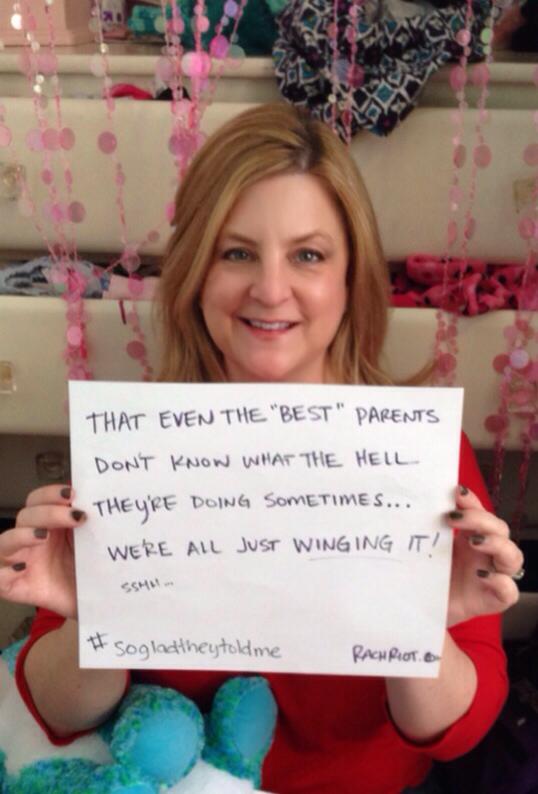 THAT EVEN THE "BEST" PARENTS
DON'T KNOW WHAT THE HELL
THEY'RE DOING SOMETIMES...
WE'RE ALL JUST WINGING IT!
SSHH...
#sogladtheytoldme
RACHRIOT.